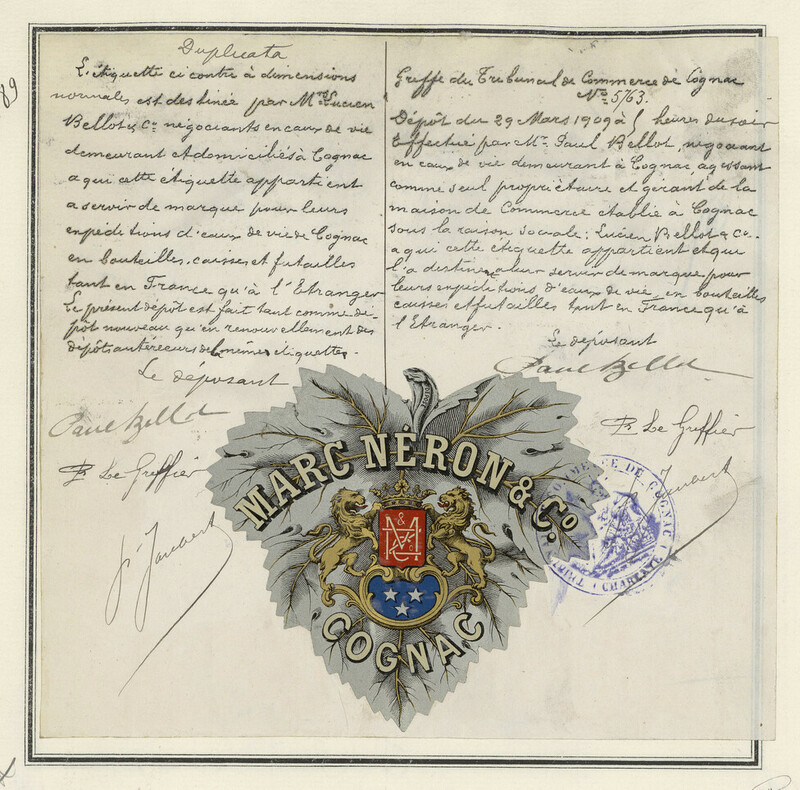 89
Duplicata
L'étiquette ci contre à dimensions
normales est destinée par Mrs Lucien
Bellot & Co négociants en eaux de vie
demeurant et domiciliés à Cognac
a qui cette étiquette appartient
a servir de marque pour leurs
expéditions d'eaux de vie de Cognac
en bouteilles, caisses et futailles
tant en France qu'à l'Etranger
Le présent dépôt est fait tant comme dé-
pôt nouveau qu'en renouvellement des
dépôts antérieurs de mêmes étiquettes.
Le déposant
Paul Bellot
Le Greffier
Jaubert
Greffe du Tribunal de Commerce de Cognac
No 5163.
Dépôt du 29 Mars 1909 à 5 heures du soir
Effectué par Mr. Paul Bellot, négociant
en eaux de vie demeurant à Cognac, agissant
comme seul propriétaire et gérant de la
maison de Commerce établie à Cognac
sous la raison sociale: Lucien Bellot & Co.
a qui cette étiquette appartient et qui
l'a destinée à leur servir de marque pour
leurs expéditions d'eaux de vie, en bouteilles
caisses et futailles tant en France qu'à
l'Etranger.
Le déposant
Paul Bellot
Le Greffier
Jaubert
MARC NÉRON & Co.
COGNAC
COMMERCE DE COGNAC